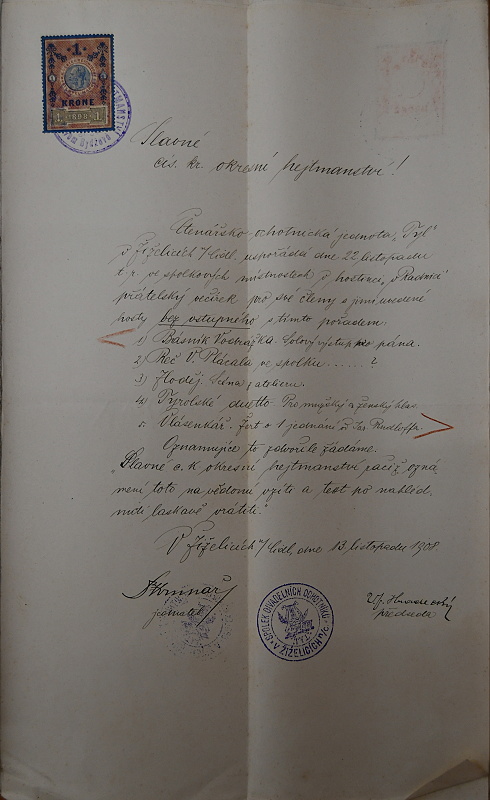 1
KRONE
1. 1898 1.
Slavné
cís. kr. okresní hejtmanství!
Čtenářsko ochotnická jednota „Tyl"
v Žiželicích n/Cidl. uspořádá dne 22 listopadu
t. r. ve spolkových místnostech v hostinci „u Radnice"
přátelský večírek pro své členy s jimi uvedené
hosty bez vstupného s tímto pořadem
1) Básník Vodrážka. Solový výstup pro pána.
2) Řeč V. Plácala ve spolku......?
3) Zloděj. Scéna z atelieru.
4) Tyrolské duetto Pro mužský a ženský hlas.
5. Vlásenkář. Žert o 1 jednání od Jos. Rudloffa.
Oznamujíce to zdvořile žádáme.
„Slavné c. k. okresní hejtmanství račiž ozná
mení toto na vědomí vzíti a text po nahléd
nutí laskavě vrátiti."
V Žiželicích n/Cidl. dne 13 listopadu 1908.
jednatel
předseda
SPOLEK DIVADELNÍCH OCHOTNÍKŮ
TYL
V ŽIŽELICÍCH N/C.